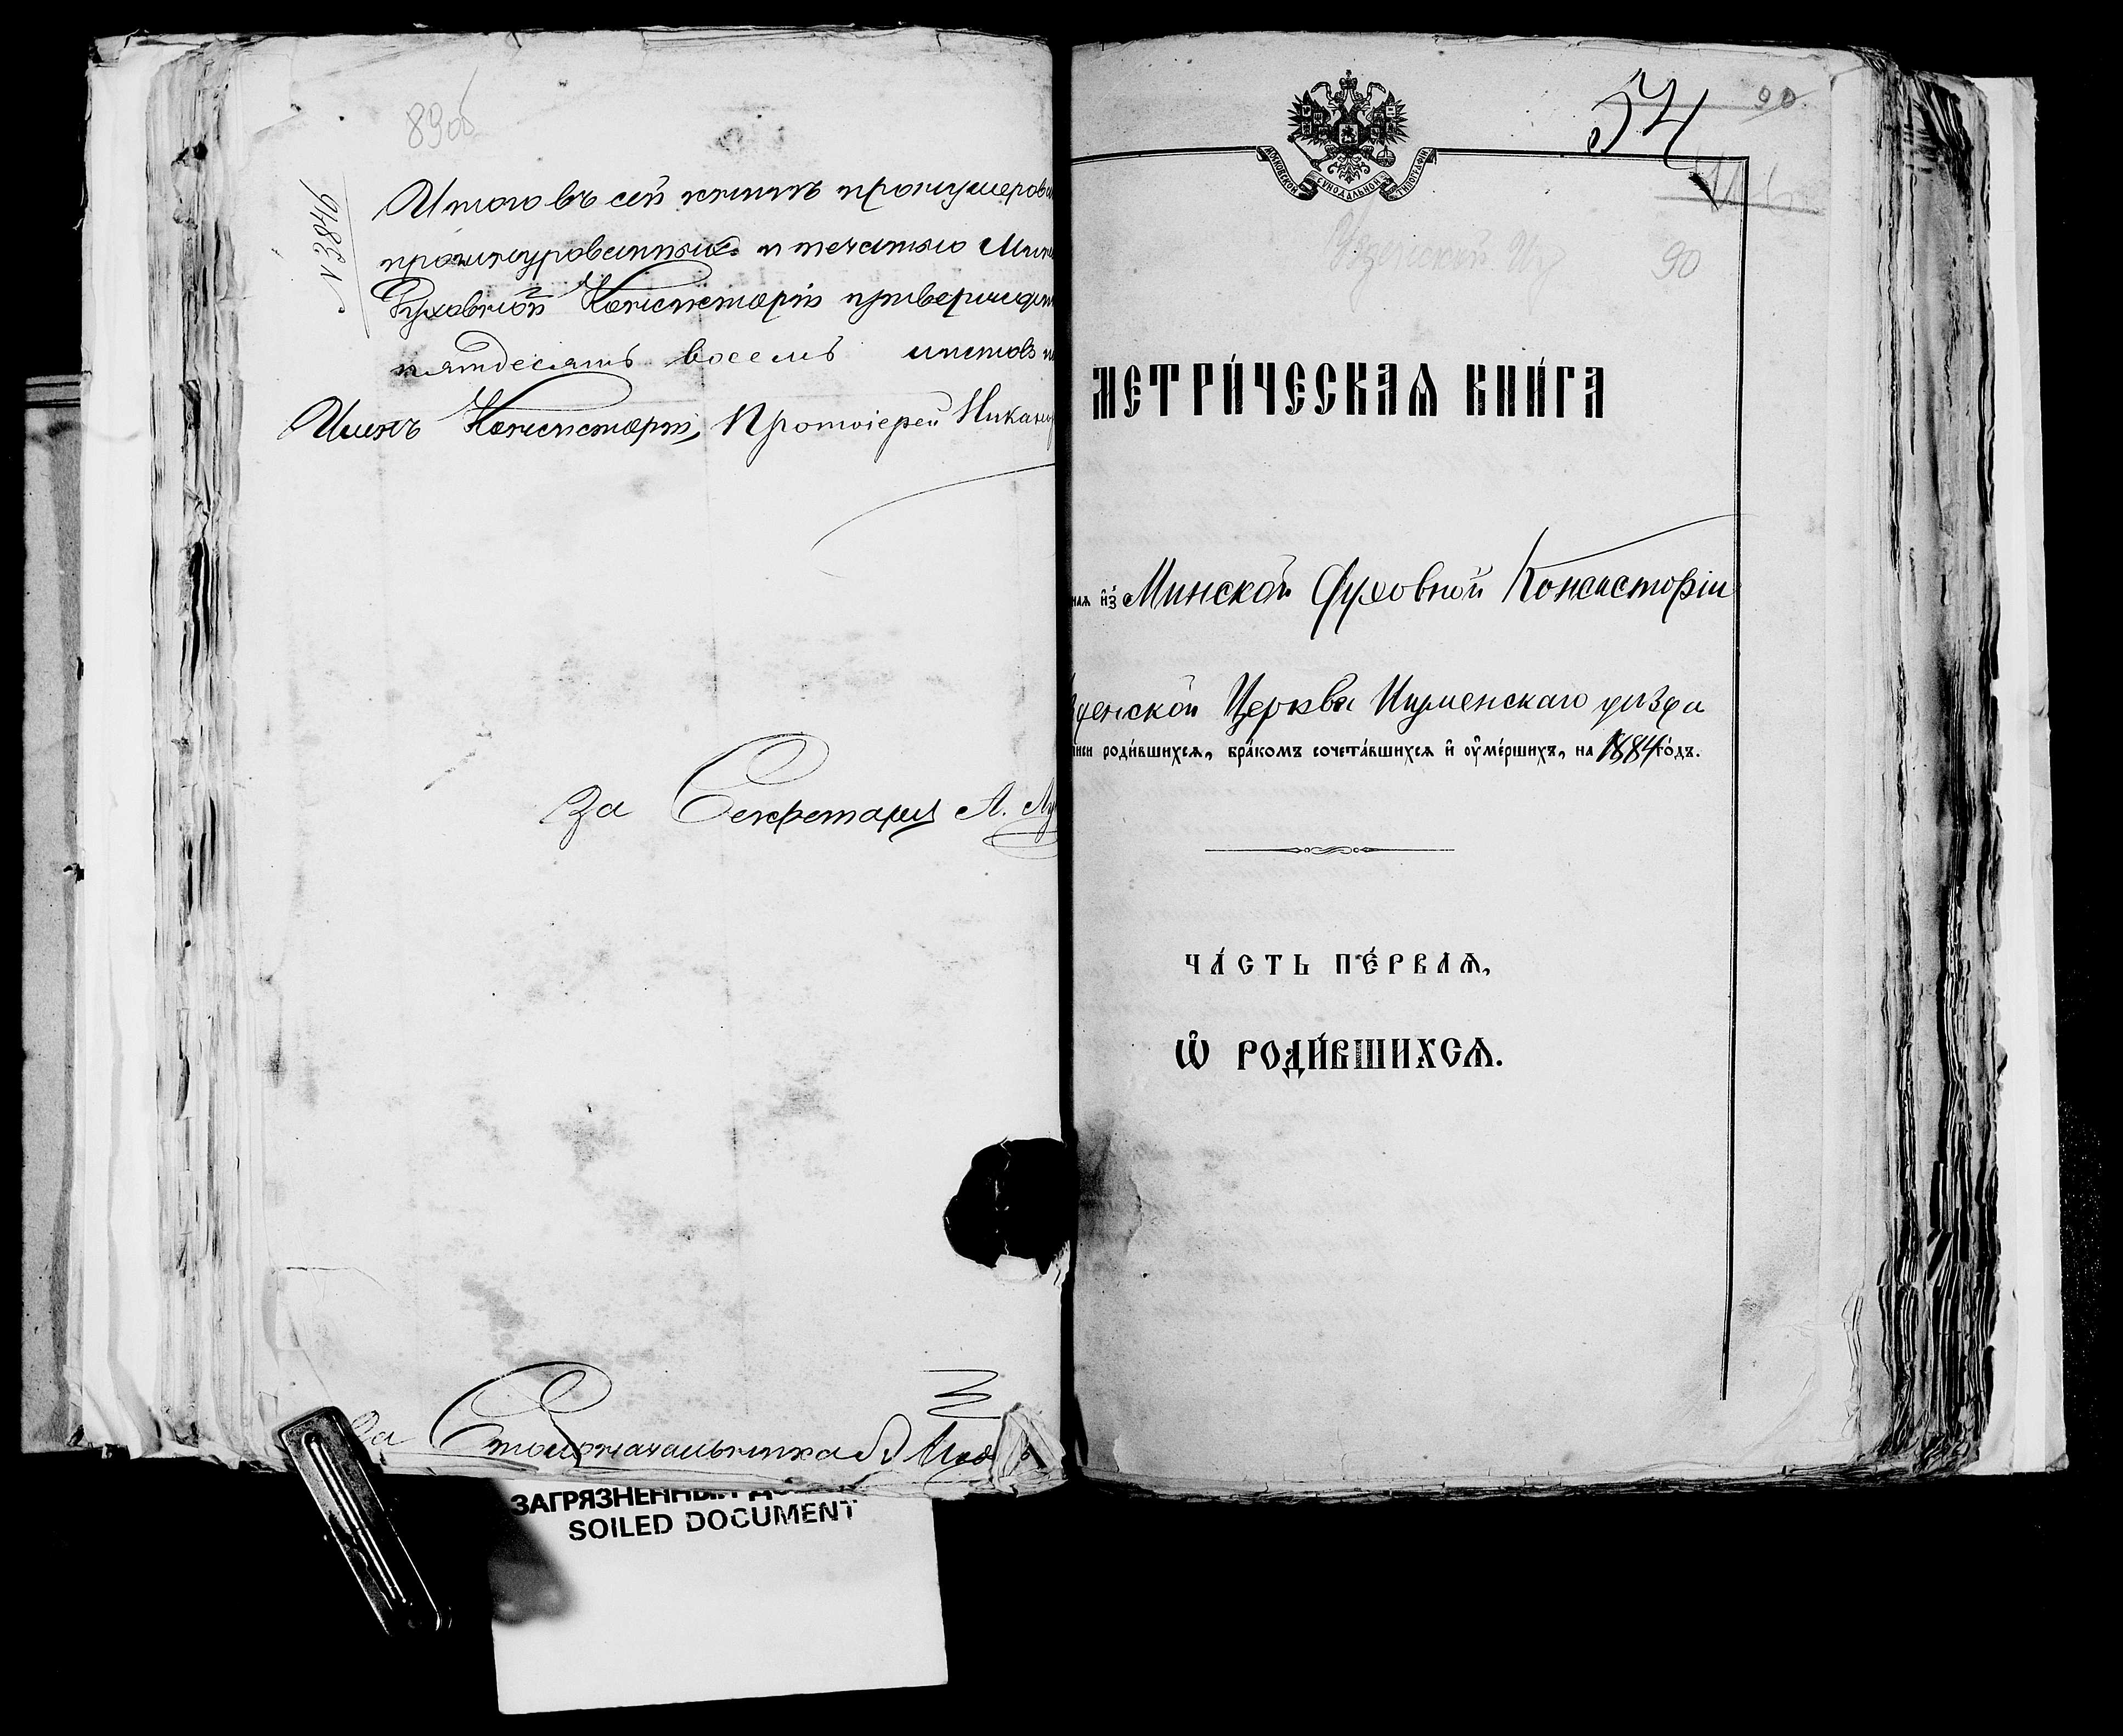 89об
N 3846
Итого въ сей книгѣ пронумерова
прошнурованныхъ и печатью Мин
Духовной Консисторіи
пятдесятъ восемь листовъ
Членъ Консисторіи, Протоіерей Никано
За Секретаря А.
За Столоначальника
ЗАГРЯЗНЕННЫЙ
SOILED DOCUMENT
МОСКОВСКОЙ СѴНОДАЛЬНОЙ ТИПОГРАФІИ
54
90
90
МЕТРИ́ЧЕСКАѦ КНИ́ГА
наѧ и҆з̾ Минской Духовной Консисторіи
зденской Церкви Игуменскаго уѣзда
писи роди́вшихсѧ, бра́комъ сочета́вшихсѧ и҆ ᲂу҆ме́ршихъ, на 1884 го́дъ.
ЧА́СТЬ ПЕ́РВАѦ,
Ѽ РОДИ́ВШИХСѦ.